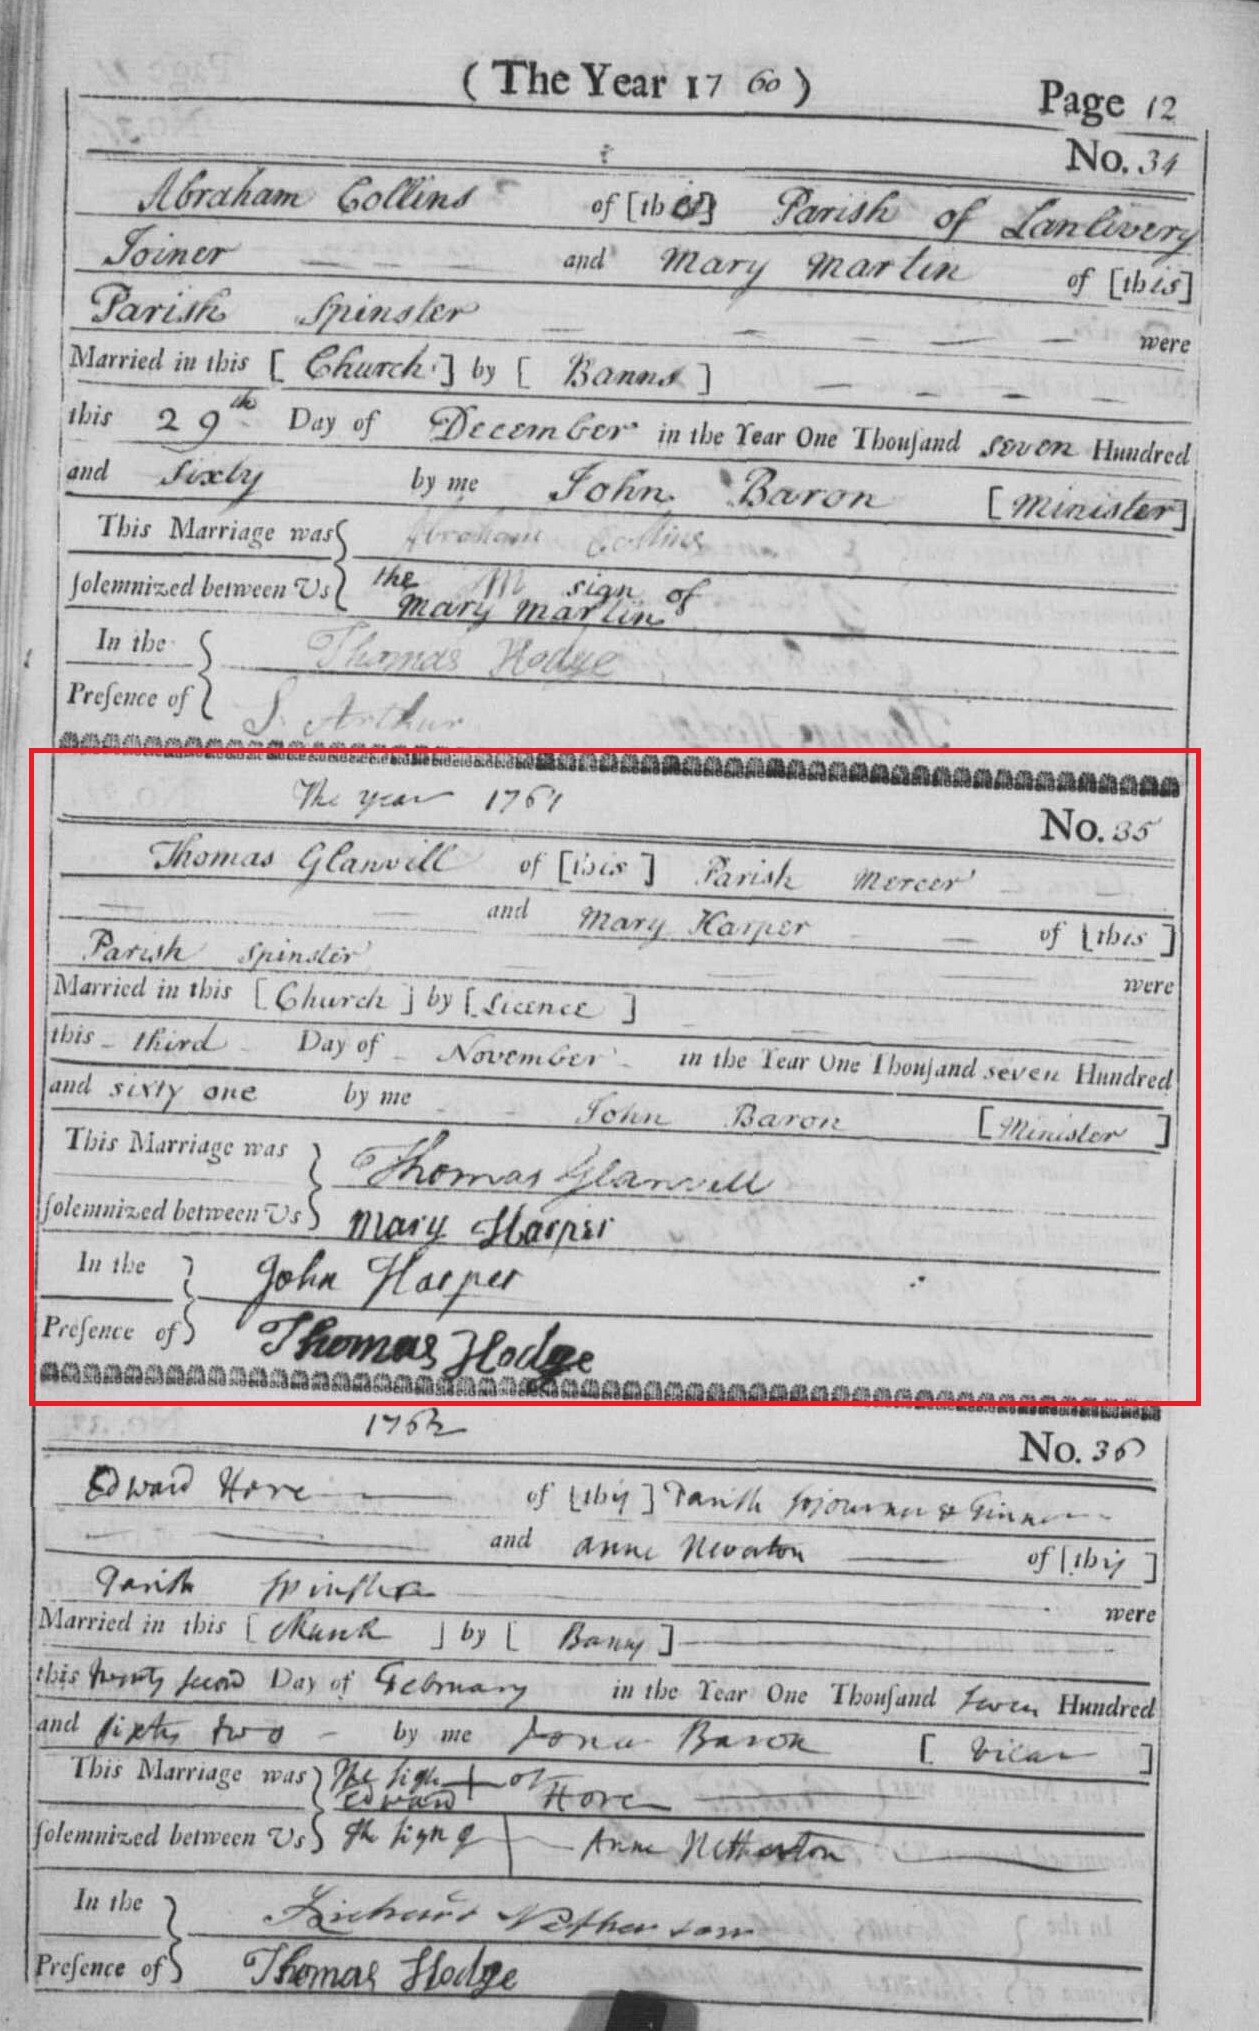 ( The Year 1760 )
Page 12
No. 34
Abraham Collins of [this] Parish of Lanlivery
Joiner and Mary Martin of [this]
Parish Spinster were
Married in this [ Church ] by [ Banns ]
this 29th Day of December in the Year One Thouſand seven Hundred
and Sixty by me John Baron [ Minister ]
This Marriage was } Abraham Collins
ſolemnized between Us } the M sign of
Mary Martin
In the } Thomas Hodge
Preſence of } S. Arthur
The year 1761
No. 35
Thomas Glanvill of [this] Parish Mercer
and Mary Harper of [this]
Parish Spinster were
Married in this [ Church ] by [ Licence ]
this third Day of November in the Year One Thouſand seven Hundred
and sixty one by me John Baron [ Minister ]
This Marriage was } Thomas Glanvill
ſolemnized between Us } Mary Harper
In the } John Harper
Preſence of } Thomas Hodge
1762
No. 36
Edward Hore of [this] Parish Sojourner & Tinner
and Anne of [this]
Parish Spinster were
Married in this [ Church ] by [ Banns ]
this twenty second Day of February in the Year One Thouſand seven Hundred
and sixty two by me Baron [ Vicar ]
This Marriage was } The sign + of
Edward Hore
ſolemnized between Us } The sign of | Anne Netherton
In the } Richard
Preſence of } Thomas Hodge